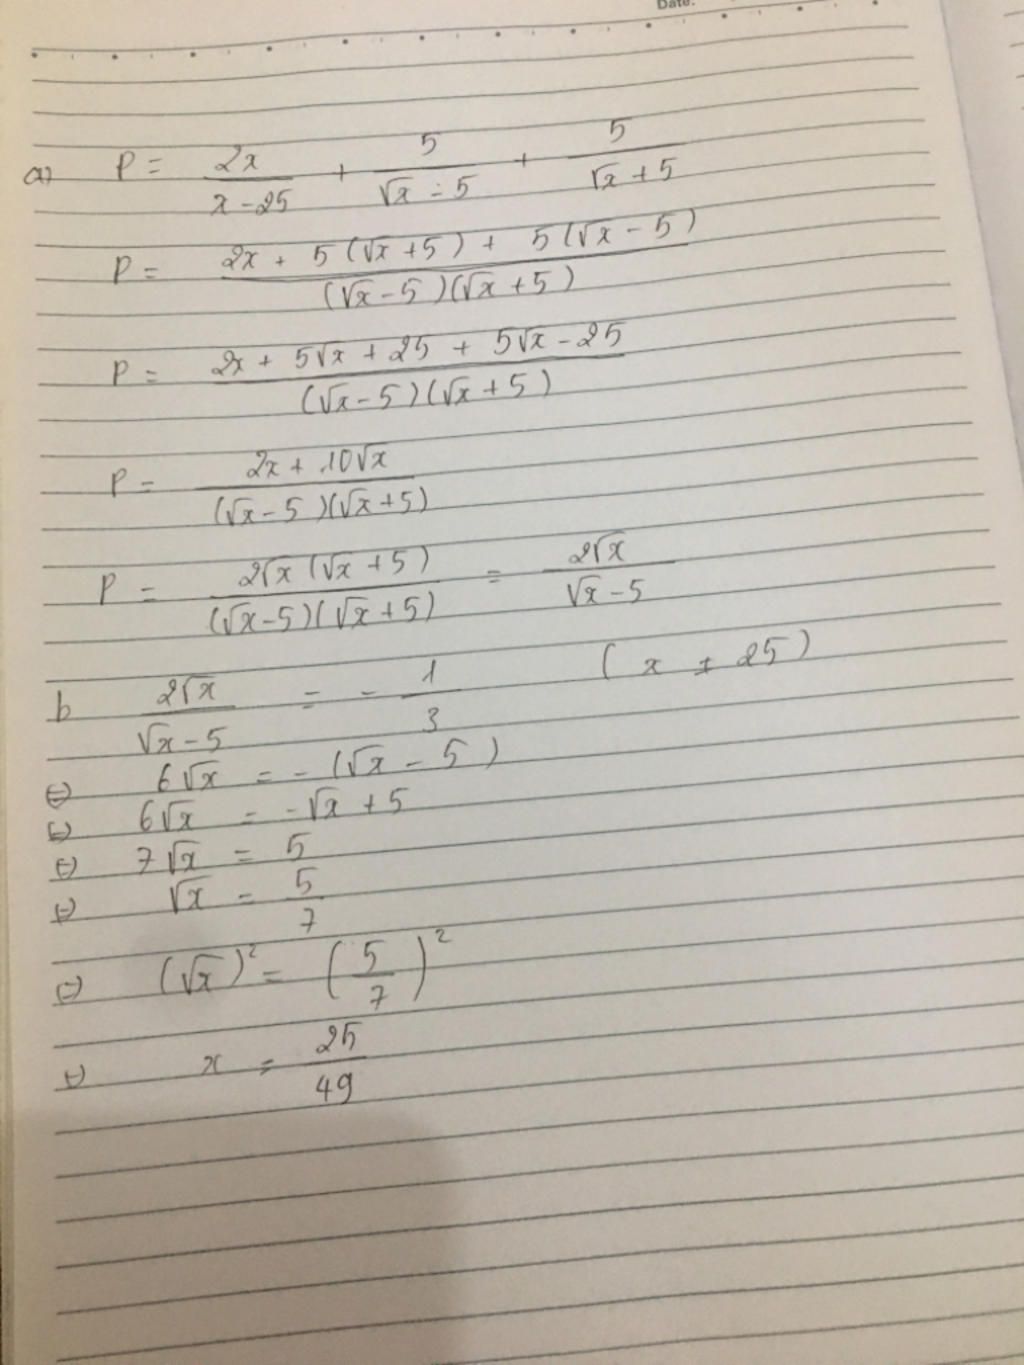 Date:
a) P = 2x / (x - 25) + 5 / (√x - 5) + 5 / (√x + 5)
P = (2x + 5(√x + 5) + 5(√x - 5)) / ((√x - 5)(√x + 5))
P = (2x + 5√x + 25 + 5√x - 25) / ((√x - 5)(√x + 5))
P = (2x + 10√x) / ((√x - 5)(√x + 5))
P = (2√x(√x + 5)) / ((√x - 5)(√x + 5)) = 2√x / (√x - 5)
b 2√x / (√x - 5) = - 1 / 3 (x ≠ 25)
⇔ 6√x = -(√x - 5)
⇔ 6√x = -√x + 5
⇔ 7√x = 5
⇔ √x = 5 / 7
⇔ (√x)² = (5 / 7)²
⇔ x = 25 / 49